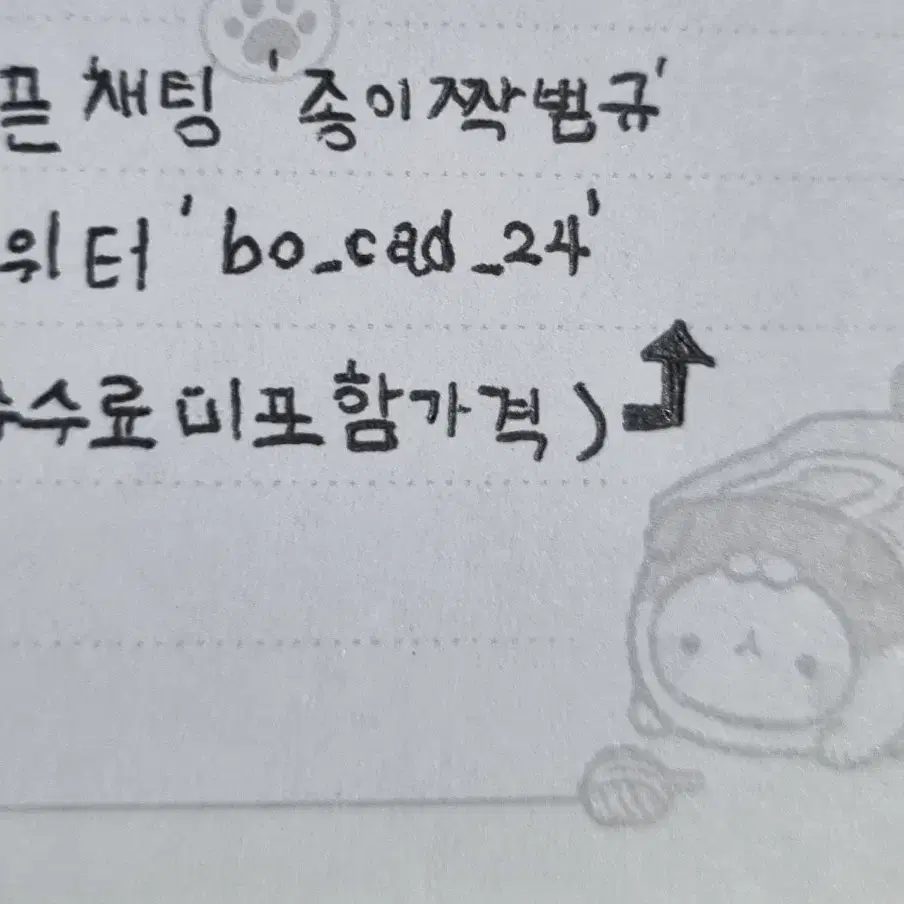 픈채팅 '종이짝범규'
위터 'bo_cad_24'
수수료미포함가격)